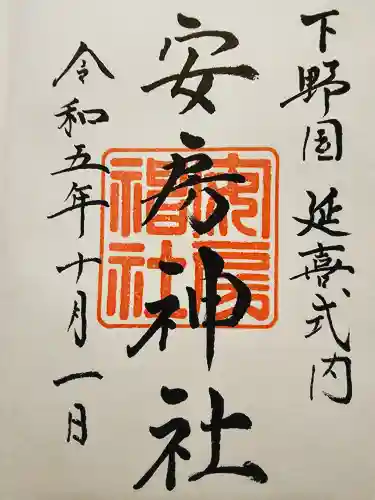 下野国 延喜式内
安房神社
安房
神社
令和五年十月一日